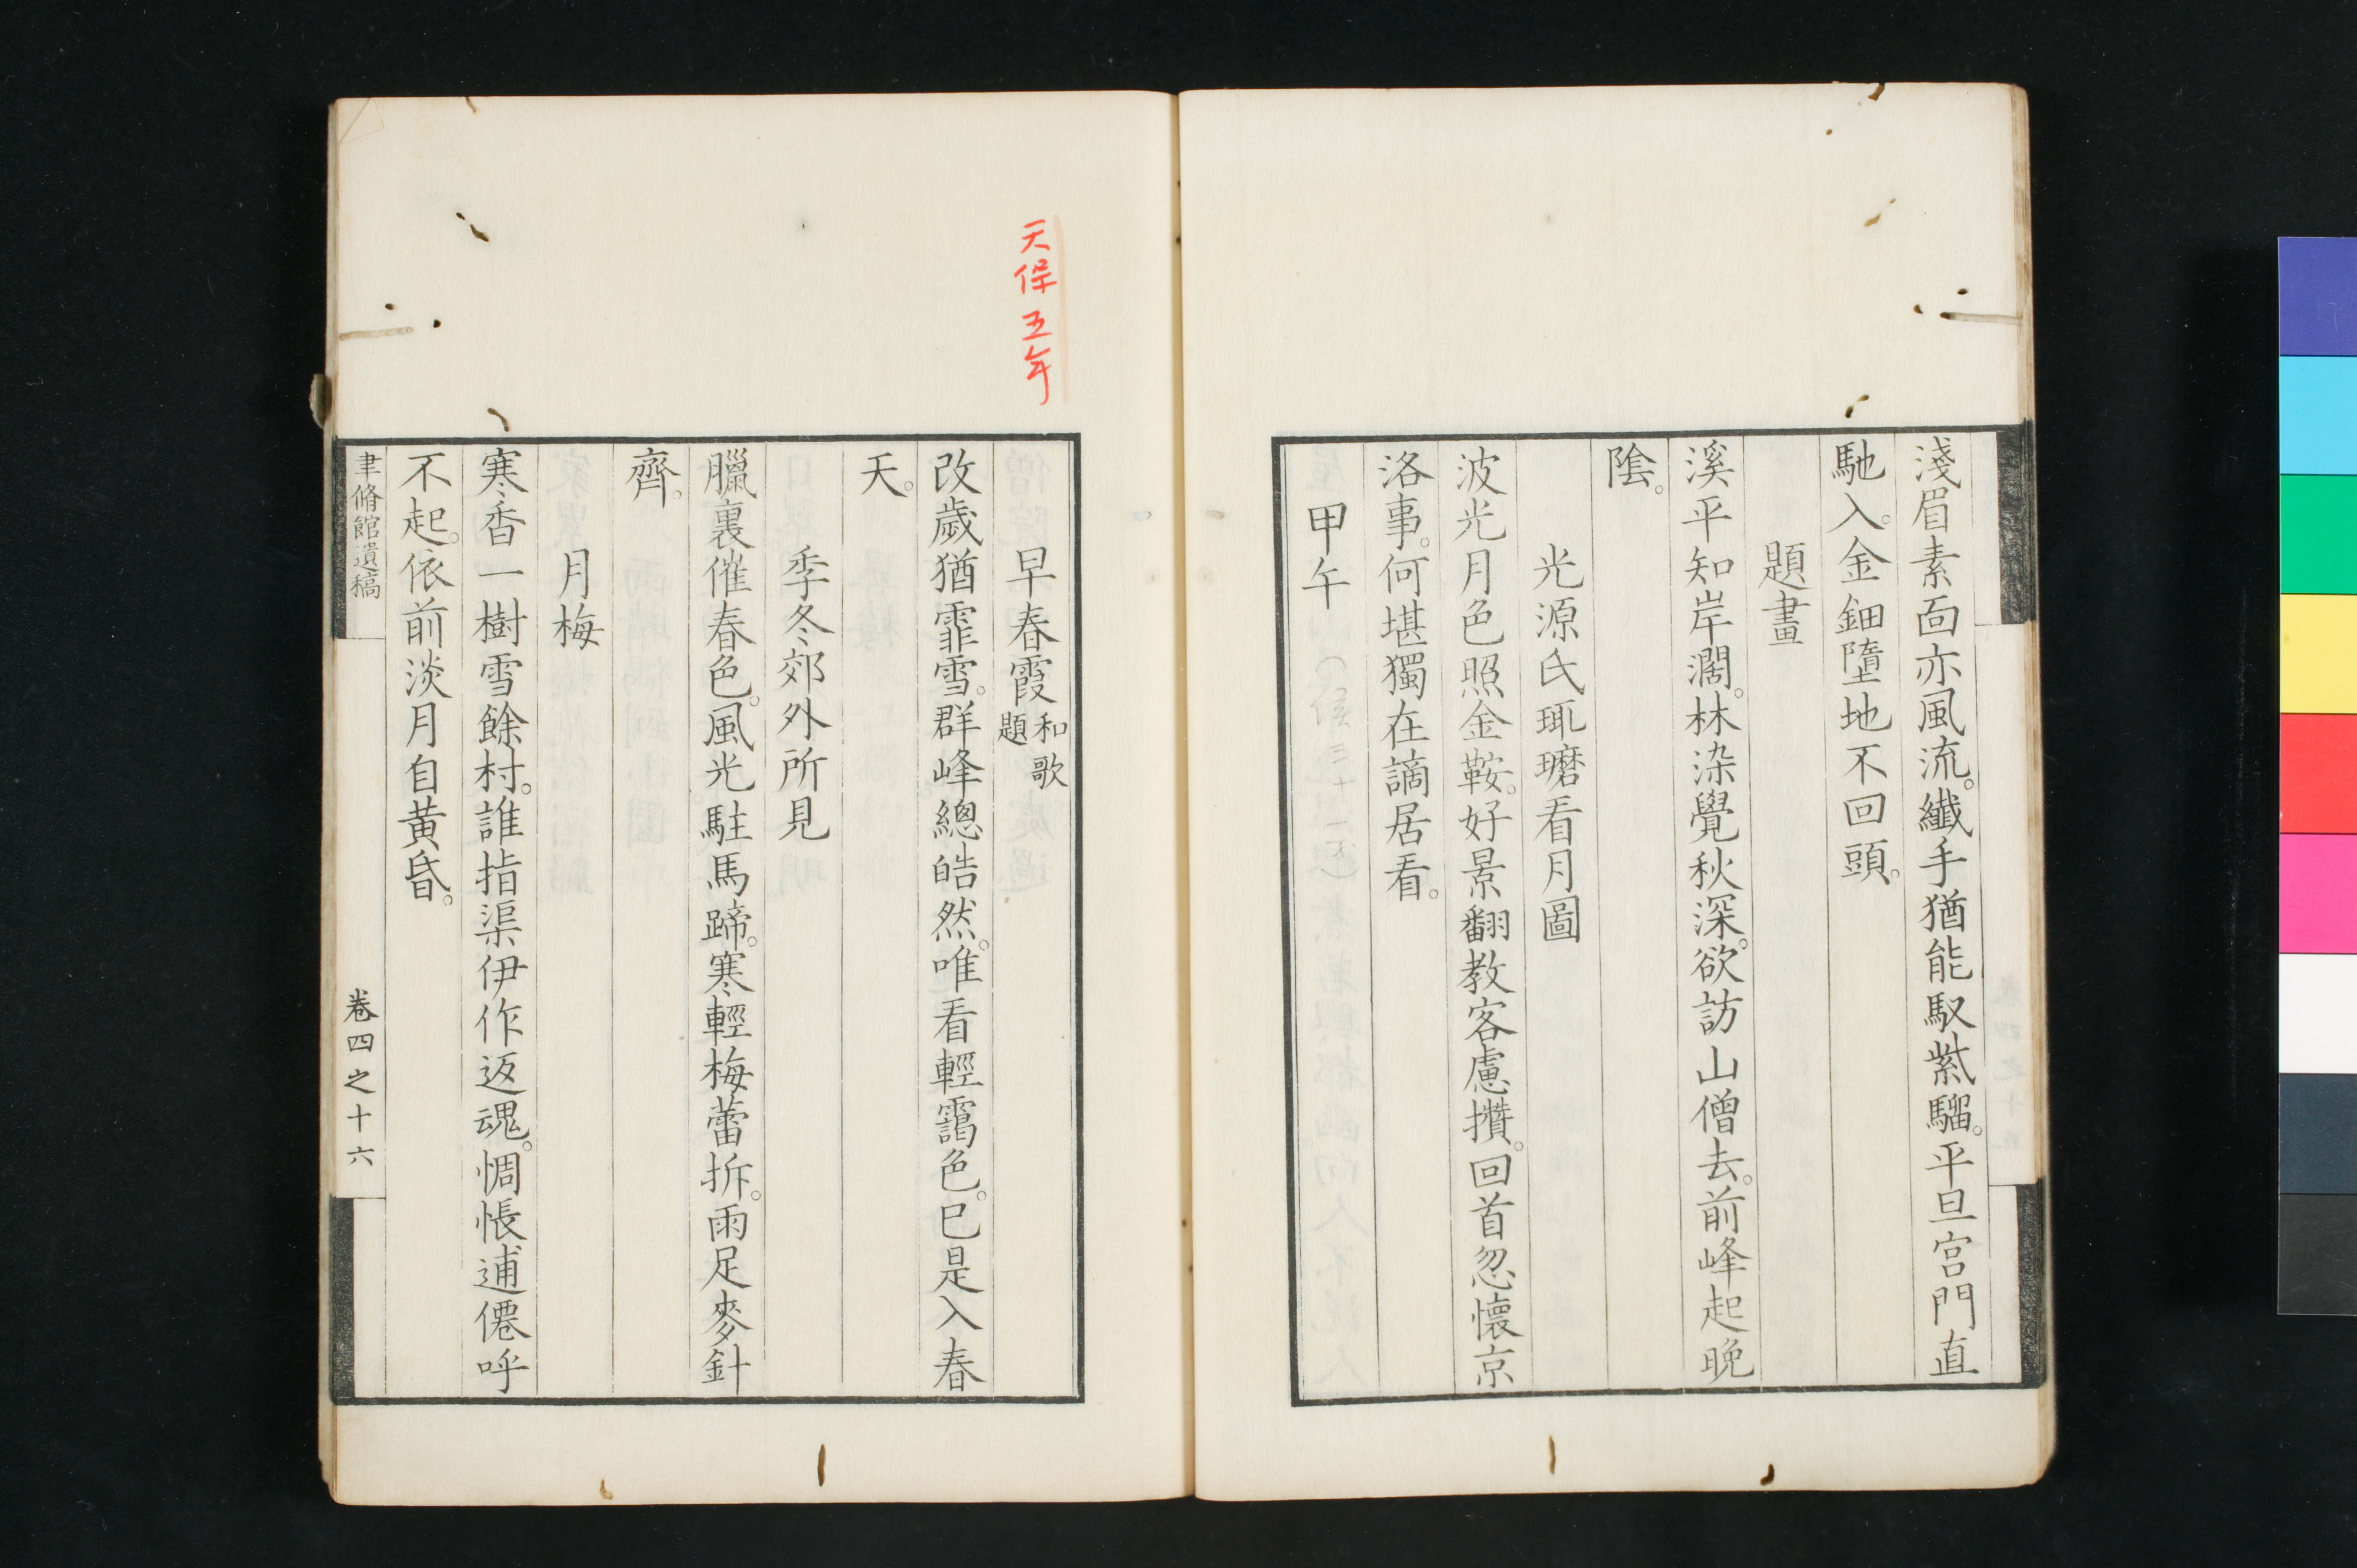 淺眉素面亦風流。纖手猶能馭紫騮。平旦宮門直
馳入。金鈿墮地不回頭。
題畫
溪平知岸濶。林染覺秋深。欲訪山僧去。前峰起晚
陰。
光源氏瑘瑭看月圖
波光月色照金鞍。好景翻教客慮攢。回首忽懷京
洛事。何堪獨在謫居看。
甲午
天保五年
早春霞 和歌題
改歲猶霏雪。群峰總皓然。唯看輕靄色。已是入春
天。
季冬郊外所見
臘裏催春色。風光駐馬蹄。寒輕梅蕾拆。雨足麥針
齊。
月梅
寒香一樹雪餘村。誰指渠伊作返魂。惆悵逋僊呼
不起。依前淡月自黃昏。
聿脩館遺稿
卷四之十六